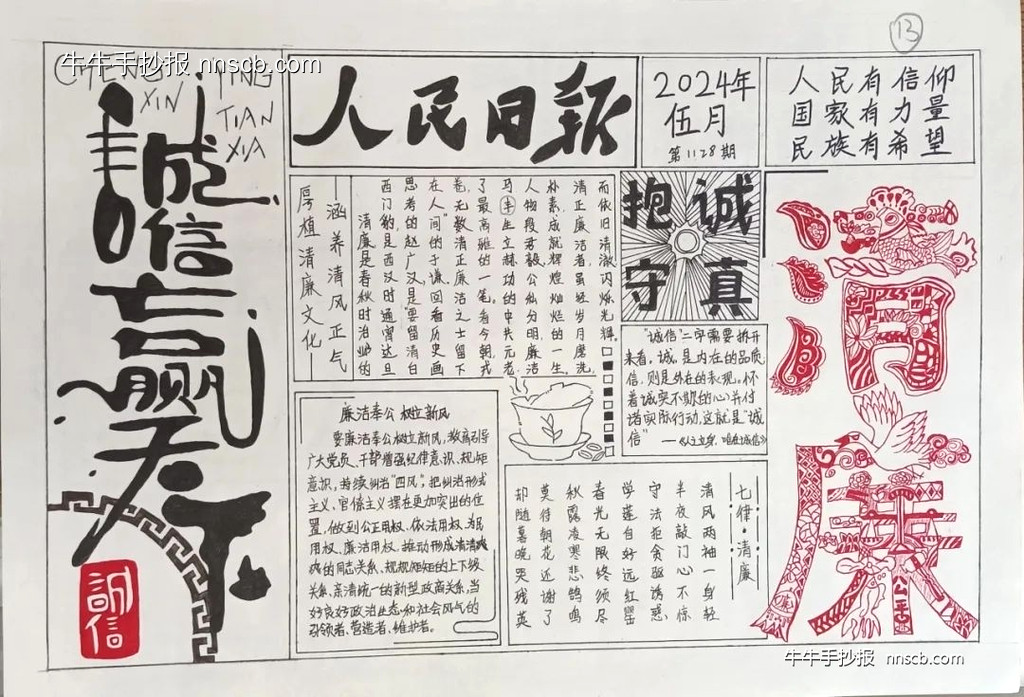 CHENG XIN YING TIAN XIA
誠信言赢天下
誠信
牛牛手抄报 nnscb.com
人民日报
2024年
伍月
第1128期
人民有信仰
国家有力量
民族有希望
13
涵养清风正气
厚植清廉文化
清廉是春秋时治邺的
西门豹,是西汉时通宵达旦
思考的赵广汉,是“要留清白
在人间”的于谦。回看历史画
卷,无数清正廉洁之士留下
了最高雅的一笔。看今朝,戎
马半生立赫功的中共元老
人物段君毅,公仙分明,廉洁
朴素,成就辉煌灿烂的一生。
清正廉洁者,虽经岁月磨洗,
而依旧清澈闪烁光辉。
抱诚守真
“诚信”二字需要拆开
来看。诚,是内在的品质
信,则是外在的表现。怀
着诚实不欺的心,并付
诸实际行动,这就是“诚
信”
廉洁奉公 树立新风
要廉洁奉公树立新风,教育引导
广大党员、干部增强纪律意识、规矩
意识,持续纠治“四风”,把纠治形式
主义、官僚主义摆在更加突出的位
置,做到公正用权、依法用权、为民
用权、廉洁用权,推动形成清清爽
爽的同志关系、规规矩矩的上下级
关系、亲清统一的新型政商关系,当
好良好政治生态和社会风气的
引领者、营造者、维护者。
七律·清廉
清风两袖一身轻
半夜敲门心不惊
守法拒贪驱诱惑
学莲自好远红罂
春光无限终须尽
秋露凌寒悲鸽鸣
莫待朝花近谢了
却随暮晚哭残英
清廉
公正
牛牛手抄报 nnscb.com